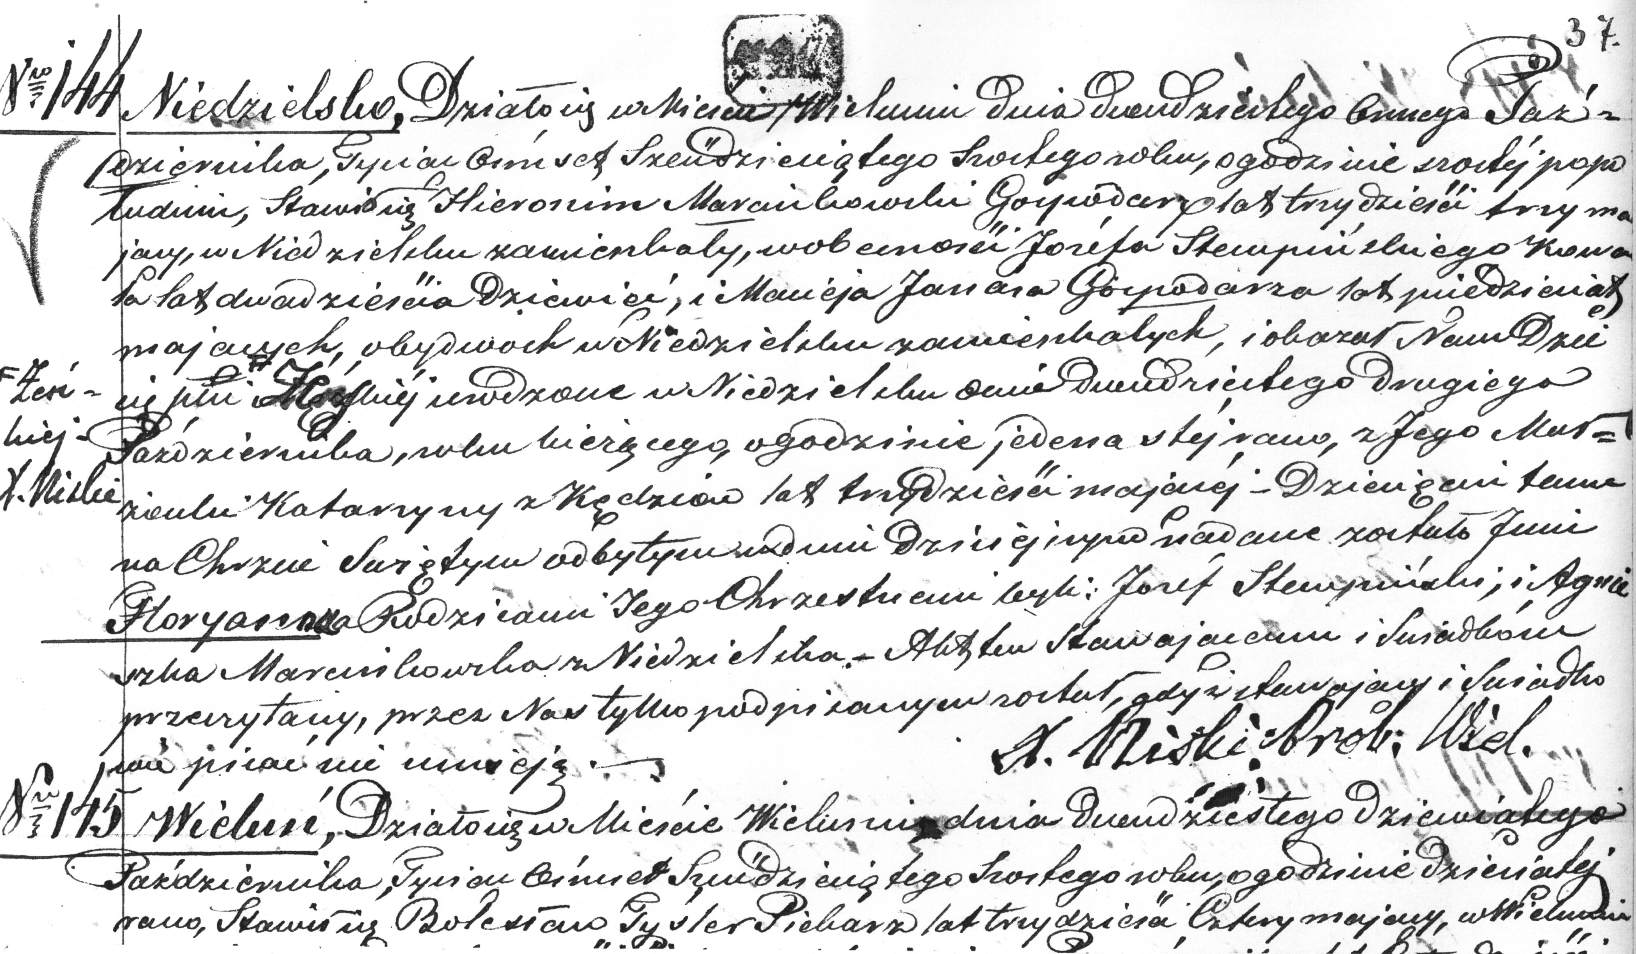 37.
Nro 144 Niedzielsko, Działo się w Mieście Wieluniu Dnia dwudziestego ósmego Paź-
dziernika, Tysiąc Ośmset Sześdziesiątego Szóstego roku, o godzinie szostéj popo
łudniu, Stawił się Hieronim Marcinkowski Gospodarz lat trzydzieści trzy ma
jący, w Niedzielsku zamieszkały, w obecności Józefa Stempińskiego Kowa
la lat dwadzieścia Dziewięć, i Macieja Janasa Gospodarza lat pięćdziesiąt
mających, obydwóch w Niedzielsku zamieszkałych, i okazał Nam Dzie
cię płci # urodzone w Niedzielsku dnia dwudziestego drugiego
# Żeń-
skiej-
X. Niski
Października, roku bieżącego, o godzinie jedenastéj rano, z Jego Mał=
żonki Katarzyny z Kędziów lat trzydzieści mającéj - Dziecięciu temu
na Chrzcie Świętym odbytym w dniu dzisiejszym nadane zostało Imie
Floryanna Rodzicami Jego Chrzestnemi byli: Józef Stempiński, i Agnie
szka Marcinkowska z Niedzielska. - Akt ten Stawającemu i Świadkom
przeczytany, przez Nas tylko podpisanym został, gdyż stawający i Świadko
wie pisać nie umieją. -
X. Niski: Prob: Wiel.
Nro 145 Wieluń, Działo się w Mieście Wieluniu dnia dwudziestego dziewiątego
Października, Tysiąc Ośmset Sześdziesiątego Szostego roku, o godzinie dziesiątéj
rano, Stawił się Bolesław Tysler Piekarz lat trzydzieści cztery mający, w Wieluniu